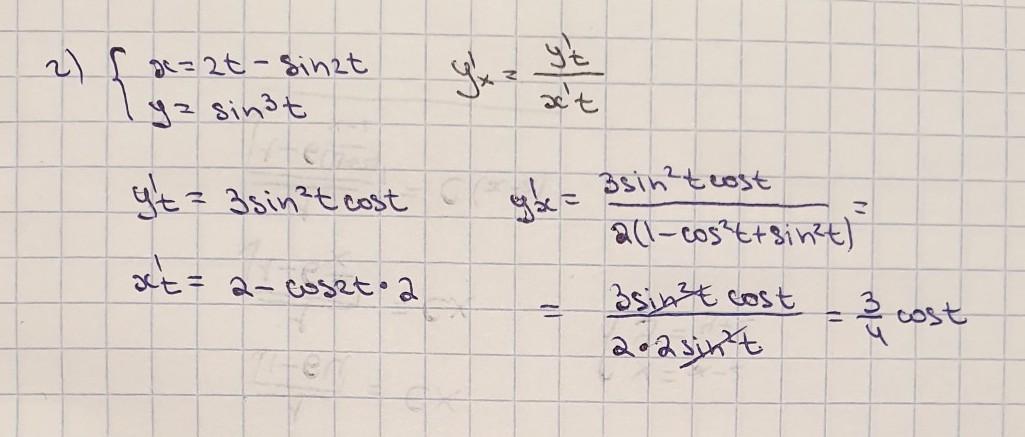 2) { x = 2t - sin2t    y'x = y't / x't
y = sin³t
y't = 3sin²t cost    y'x = 3sin²t cost / 2(1-cos²t+sin²t) =
x't = 2 - cos2t·2    = 3sin²t cost / 2·2sin²t = 3/4 cost